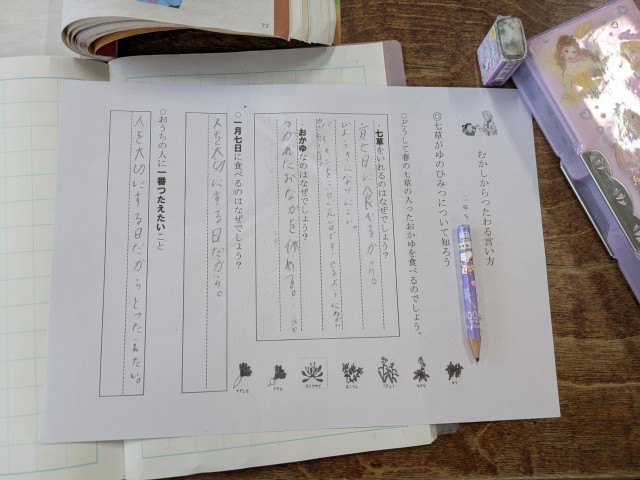 むかしからつたわる言い方
◎七草がゆのひみつについて知ろう
○どうして春の七草の入ったおかゆを食べるのでしょう。
・七草をいれるのはなぜでしょう?
一月七日に食べるから。
・おかゆなのはなぜでしょう?
つかれたおなかを休める。
○一月七日に食べるのはなぜでしょう?
人を大切にする日だから。
○おうちの人に一番つたえたいこと
人を大切にする日だからとつたえたい。
72